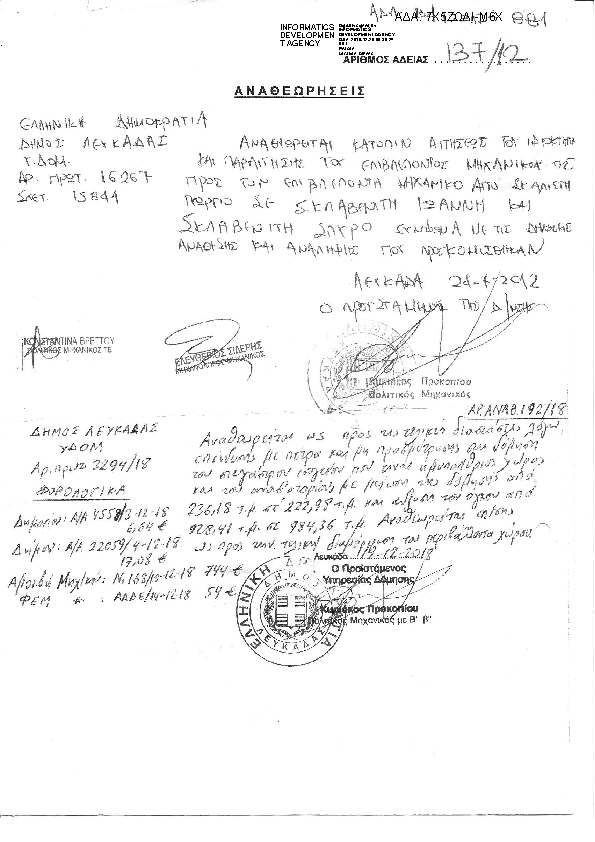 ΑΔΑ: 7Κ5ΖΩΛΙ-Μ6Χ
INFORMATICS
DEVELOPMEN
T AGENCY
ΑΡΙΘΜΟΣ ΑΔΕΙΑΣ 137/12
ΑΝΑΘΕΩΡΗΣΕΙΣ
ΕΛΛΗΝΙΚΗ ΔΗΜΟΚΡΑΤΙΑ
ΔΗΜΟΣ ΛΕΥΚΑΔΑΣ
Υ.ΔΟΜ.
ΑΡ. ΠΡΩΤ. 16267
ΣΧΕΤ. 15844
ΑΝΑΘΕΩΡΕΙΤΑΙ ΚΑΤΟΠΙΝ ΑΙΤΗΣΕΩΣ ΤΟΥ ΙΔΙΟΚΤΗΤΗ
ΚΑΙ ΠΑΡΑΙΤΗΣΗΣ ΤΟΥ ΕΠΙΒΛΕΠΟΝΤΟΣ ΜΗΧΑΝΙΚΟΥ ΩΣ
ΠΡΟΣ ΤΟΝ ΕΠΙΒΛΕΠΟΝΤΑ ΜΗΧΑΝΙΚΟ ΑΠΟ
ΓΕΩΡΓΙΟ ΣΕ ΣΚΛΑΒΕΝΙΤΗ ΙΩΑΝΝΗ ΚΑΙ
ΣΚΛΑΒΕΝΙΤΗ ΣΠΥΡΟ ΣΥΜΦΩΝΑ ΜΕ ΤΙΣ ΔΗΛΩΣΕΙΣ
ΑΝΑΘΕΣΗΣ ΚΑΙ ΑΝΑΛΗΨΗΣ ΠΟΥ ΠΡΟΣΚΟΜΙΣΘΗΚΑΝ
ΛΕΥΚΑΔΑ
Ο ΠΡΟΪΣΤΑΜΕΝΟΣ ΤΗΣ Δ/ΝΣΗΣ
ΚΩΝΣΤΑΝΤΙΝΑ ΒΡΕΤΤΟΥ
ΠΟΛΙΤΙΚΟΣ ΜΗΧΑΝΙΚΟΣ ΤΕ
ΕΛΕΥΘΕΡΙΟΣ ΣΙΔΕΡΗΣ
Κυριάκος Προκοπίου
Πολιτικός Μηχανικός
ΑΡ.ΑΝΑΘ. 192/18
ΔΗΜΟΣ ΛΕΥΚΑΔΑΣ
ΥΔΟΜ
Αρ. πρωτ 3294/18
ΦΟΡΟΛΟΓΙΚΑ
Δημοσίου: Α/Α 4558/3-12-18
6,64 €
Δήμου: Α/Α 22059/4-12-18
17,08 €
Αμοιβή Μηχ/κών: Νο 168/10-12-18 744 €
ΦΕΜ ΑΑΔΕ/14-12-18 54 €
Αναθεωρείται ως προς τις τελικές διαστάσεις λόγω
επένδυσης με πέτρα και μη προσμέτρησης στη δόμηση
του στεγάστρου ισογείου που είναι ημιυπαίθριος χώρος
και του αποθηκευτικού με μείωση της δόμησης από
236,18 τ.μ. σε 222,98 τ.μ. και αύξηση του όγκου από
928,41 τ.μ. σε 984,36 τ.μ. Αναθεωρείται επίσης
ως προς την τελική διαμόρφωση του περιβάλλοντα χώρου.
Λευκάδα 19-12-2018
Ο Προϊστάμενος
Υπηρεσίας Δόμησης
Κυριάκος Προκοπίου
Πολιτικός Μηχανικός με Β' β'
ΕΛΛΗΝΙΚΗ ΔΗΜΟΚΡΑΤΙΑ
ΔΗΜΟΣ ΛΕΥΚΑΔΑΣ